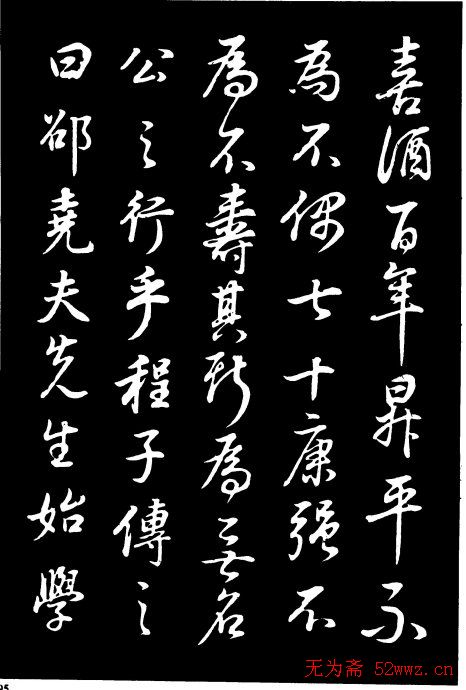 喜酒百年昇平不
為不偶七十康强不
為不壽其斯為無名
公之行乎程子傳之
曰邵堯夫先生始學
无为斋 52wwz.cn